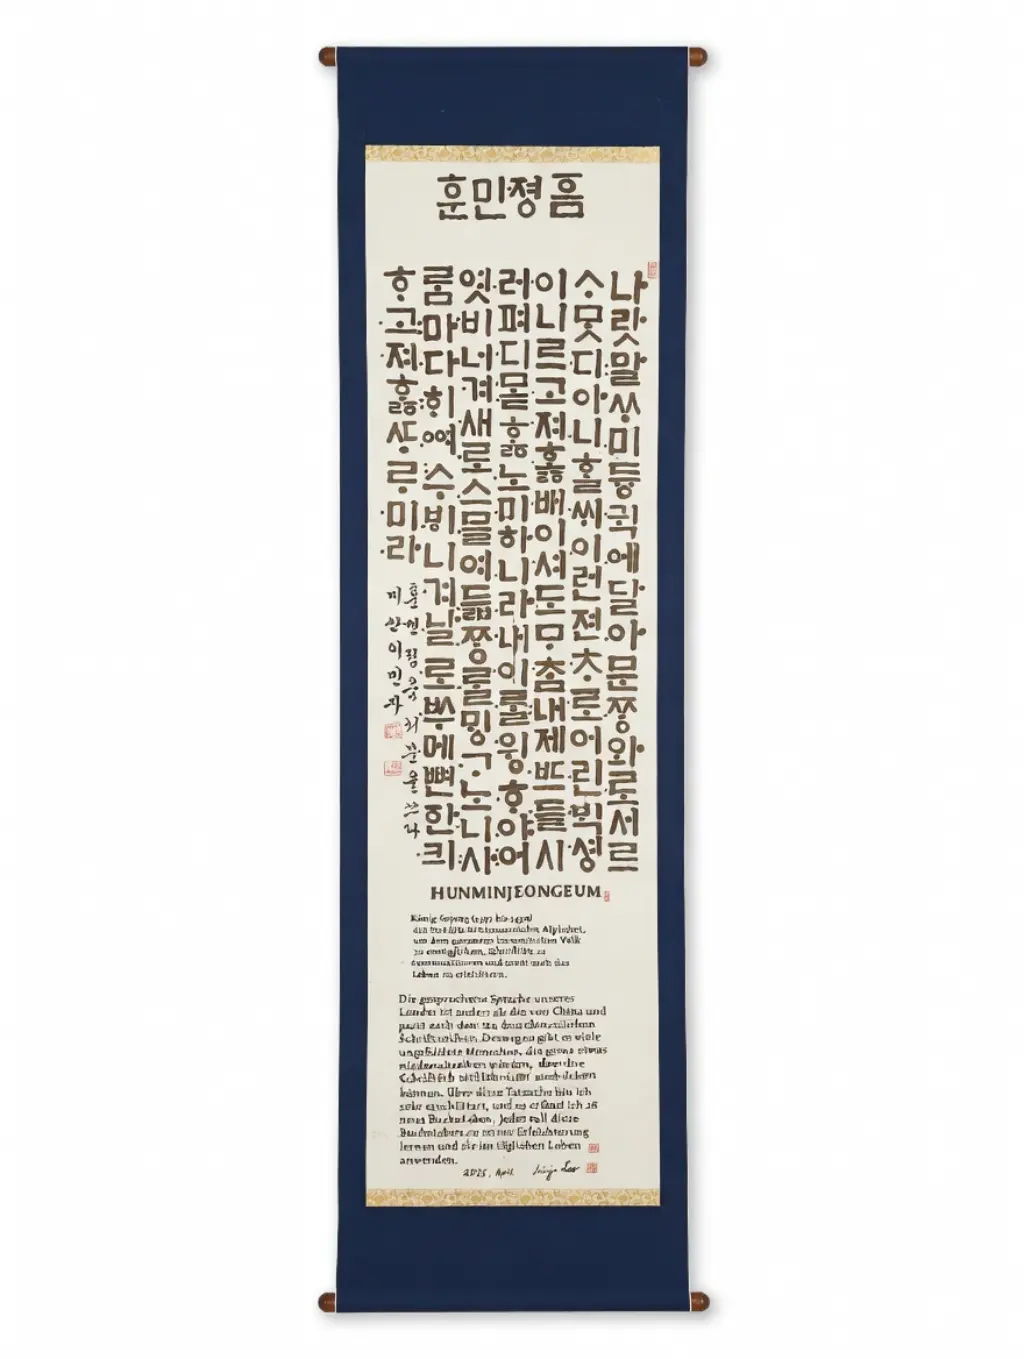 훈민졍흠
나랏말ᄊᆞ미듕귁에달아문ᄍᆞᆼ와로서르
ᄉᆞᄆᆞᆺ디아니ᄒᆞᆯᄊᆡ이런젼ᄎᆞ로어린ᄇᆡᆨ셩
이니르고져ᄒᆞᇙ배이셔도ᄆᆞᄎᆞᆷ내제ᄠᅳ들시
러펴디몯ᄒᆞᇙ노미하니라내이ᄅᆞᆯ윙ᄒᆞ야어
엿비너겨새로스믈여듧ᄍᆞᆼᄅᆞᆯᄆᆡᇰᄀᆞ노니사
ᄅᆞᆷ마다ᄒᆡᅇᅧ수ᄫᅵ니겨날로ᄡᅮ메뼌한킈
ᄒᆞ고져ᄒᆞᇙᄯᆞᄅᆞ미라
훈민졍음 서문을 쓰다
미산 이민자
HUNMINJEONGEUM
König
Alphabet,
um dem Volk
zu
und
Leben zu erleichtern.
Die gesprochene Sprache unseres
Landes ist anders als die von China und
passt nicht den chinesischen
Schriftzeichen. Deswegen gibt es viele
ungebildete Menschen, die gerne etwas
können. Über diese Tatsache bin ich
sehr und so erfand ich 28
neue Buchstaben. Jeder soll diese
Buchstaben zu
lernen und sie im täglichen Leben
anwenden.
2025. April